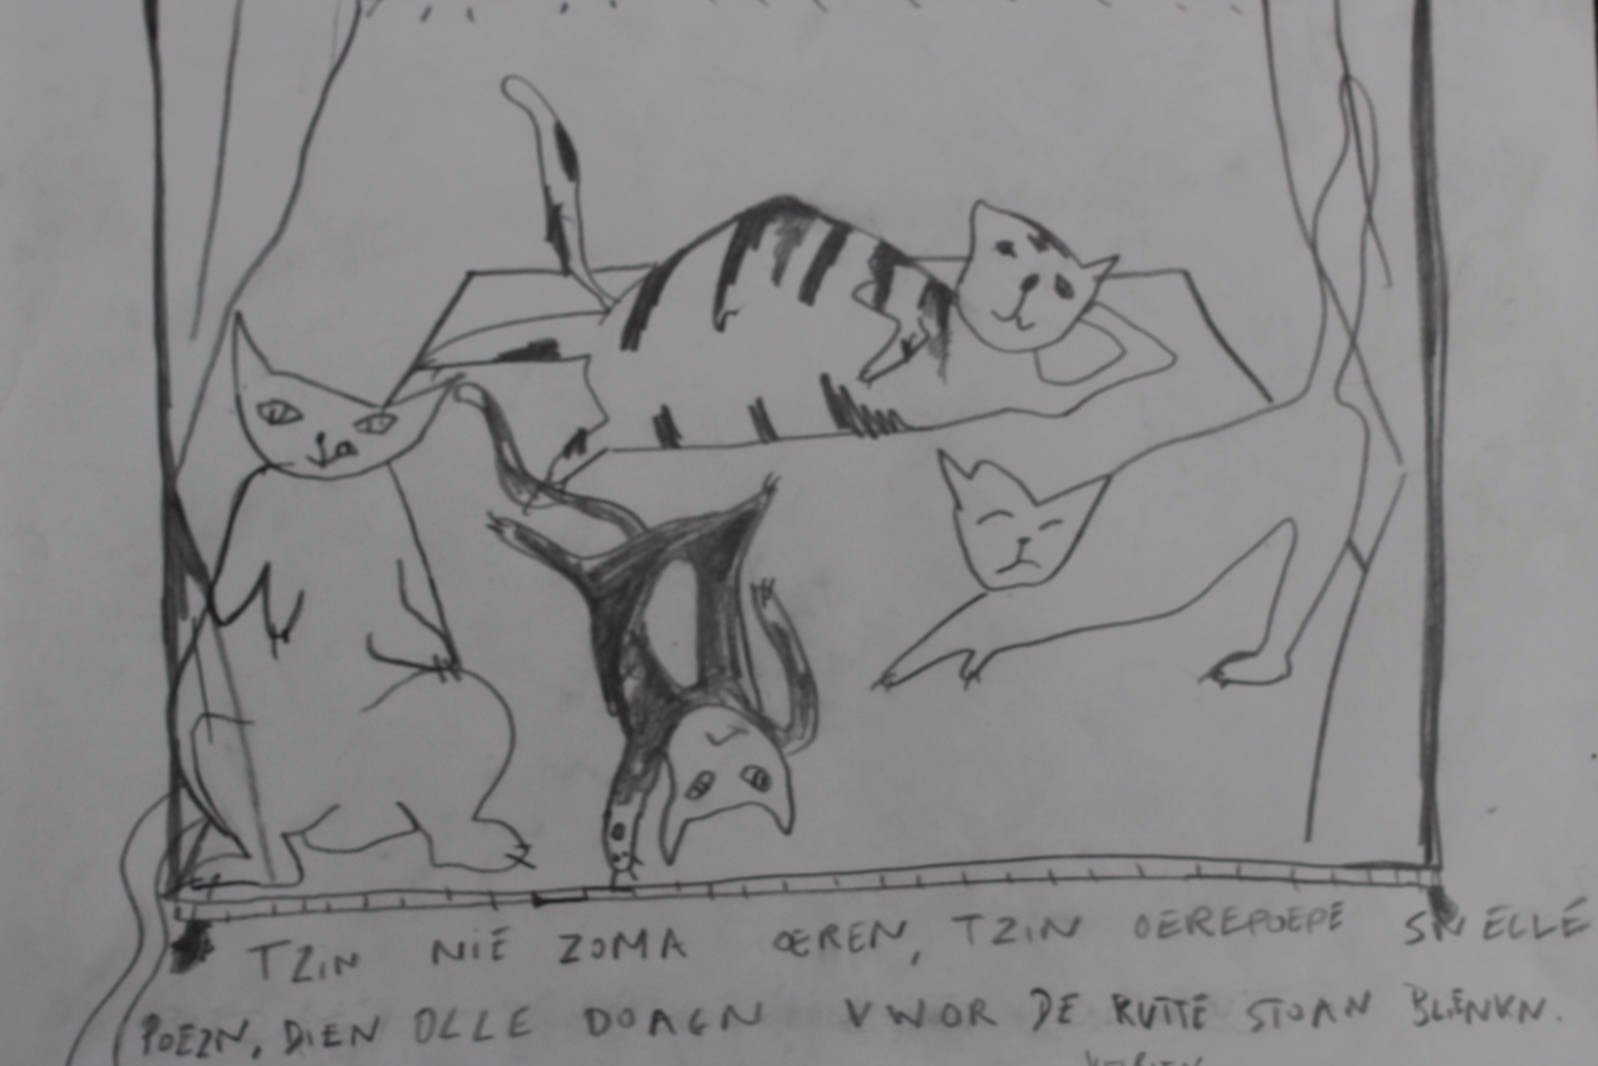 TZIN NIE ZOMA OEREN, TZIN OEREPOEPE SNELLE
POEZN, DIEN OLLE DOAGN VWOR DE RUTTE STOAN BLIENKN.